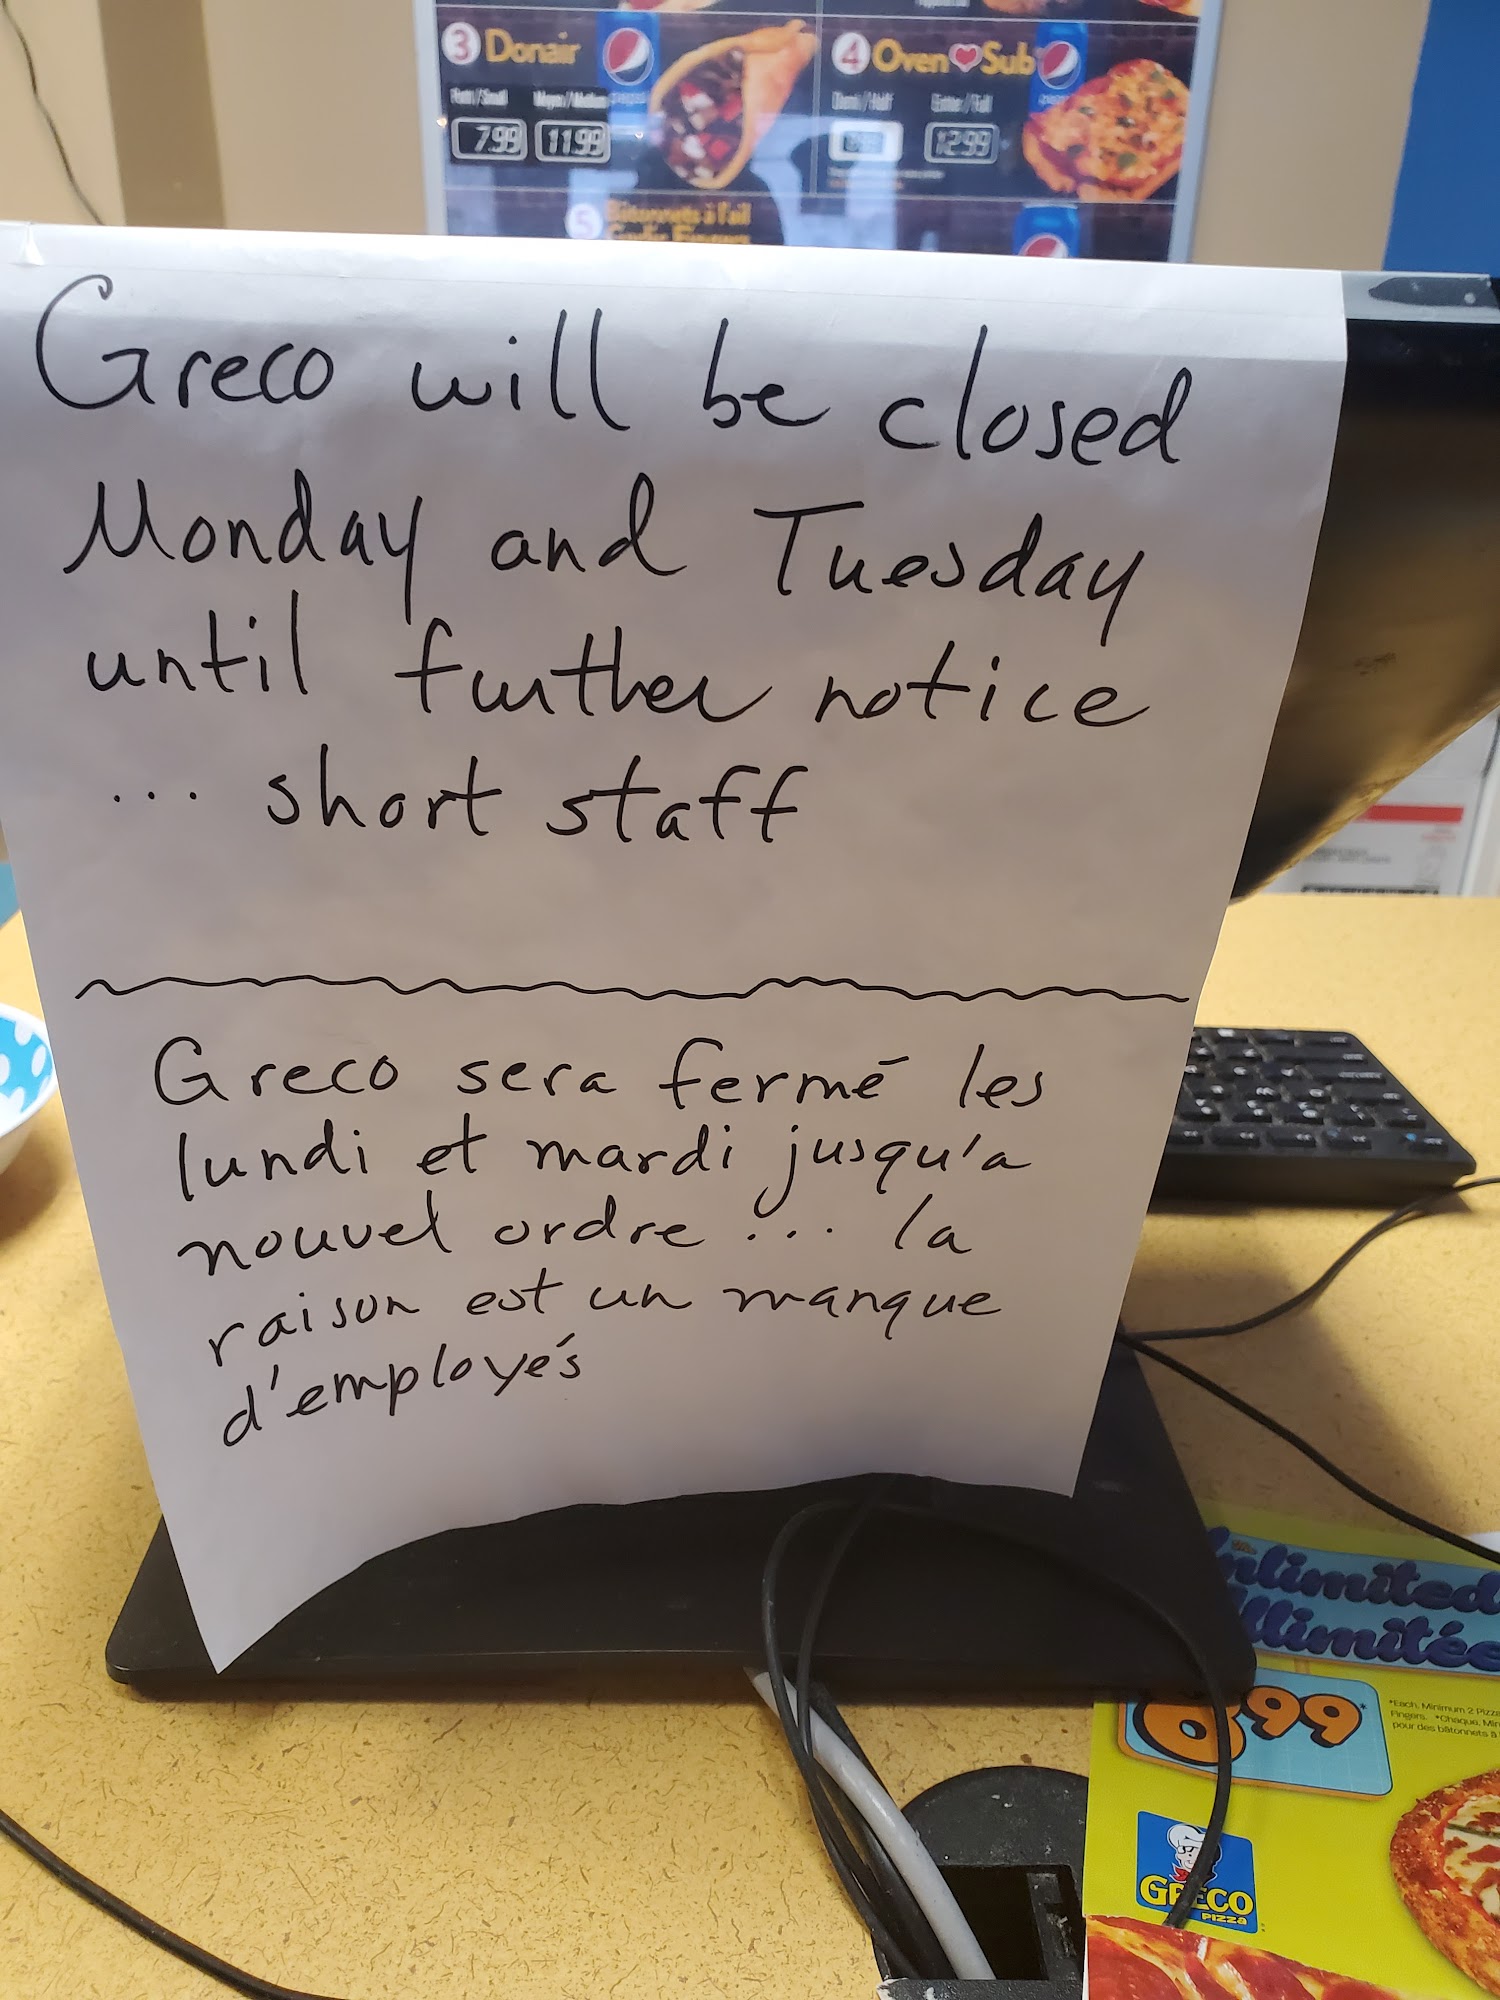 3 Donair
pepsi
Petit / Small
7.99
11.99
4 Oven Sub
Demi / Half
Entier / Full
12.99
5 Bâtonnets à l'ail
Garlic Fingers
Greco will be closed
Monday and Tuesday
until further notice
... short staff
Greco sera fermé les
lundi et mardi jusqu'a
nouvel ordre... la
raison est un manque
d'employés
Unlimited
Illimitée
6.99*
*Each. Minimum 2 Pizza
Fingers. *Chaque. Min
pour des bâtonnets à
GRECO
PIZZA